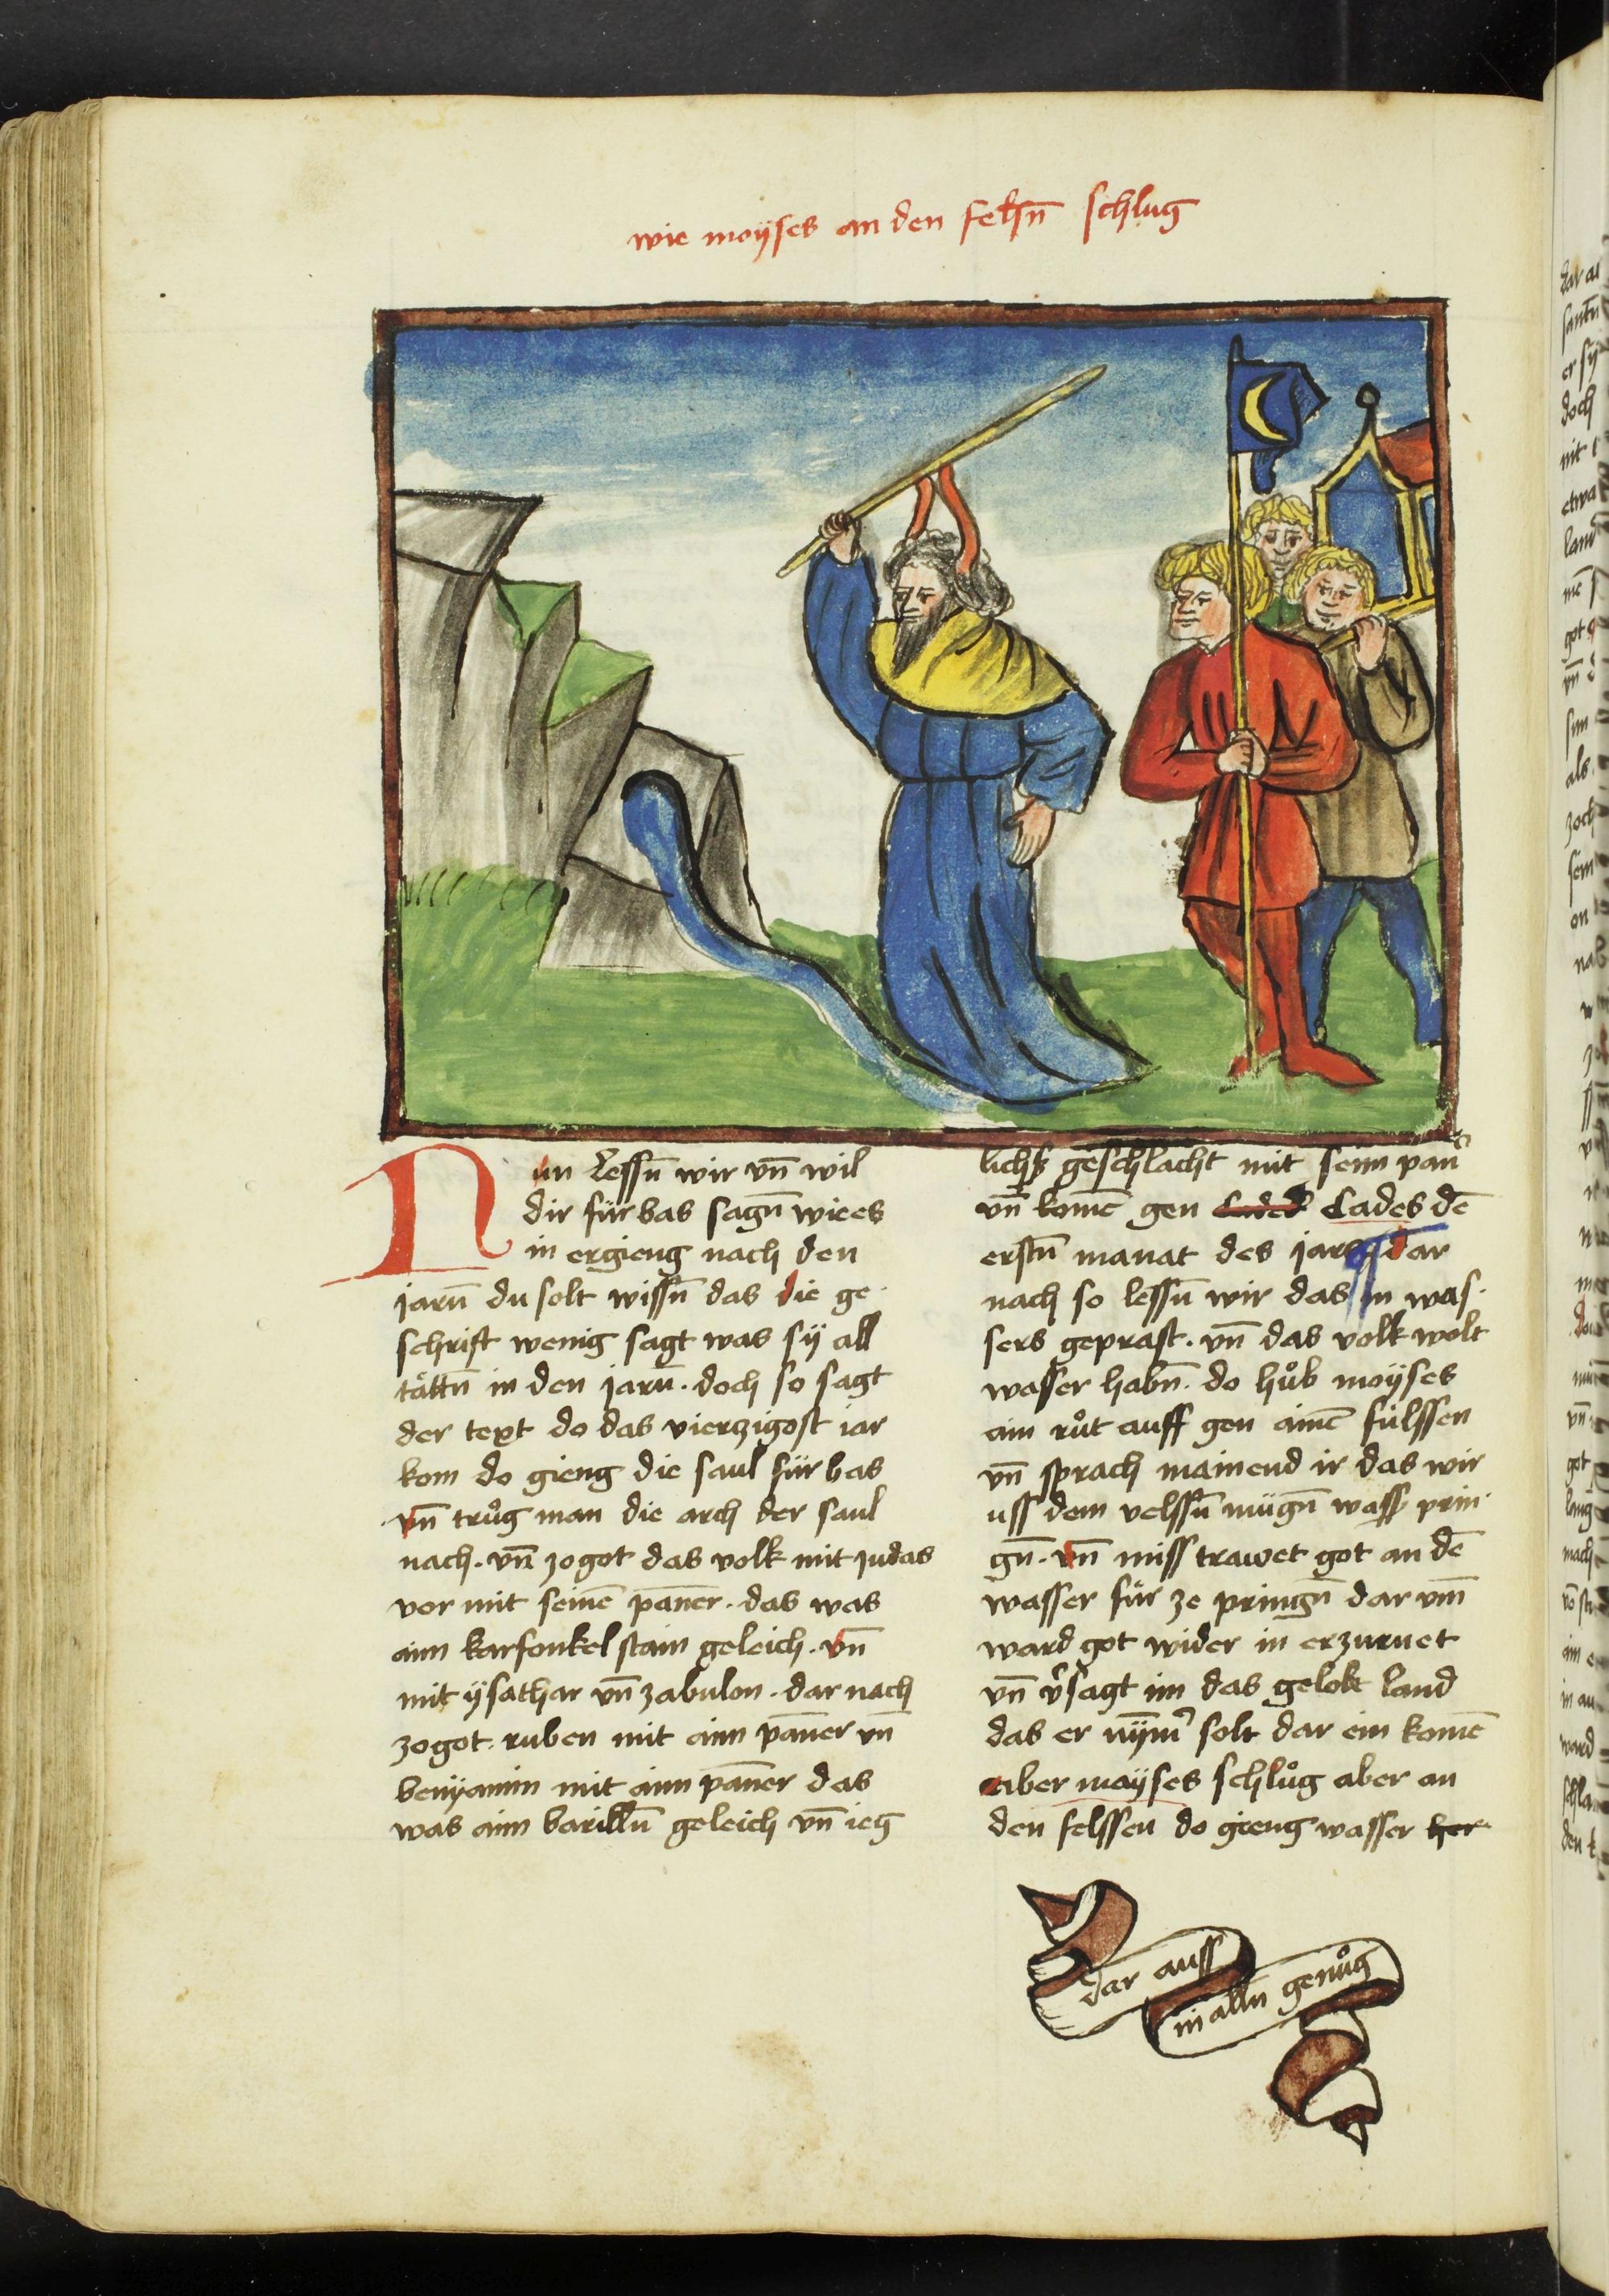 wie moÿses an den felsn̄ schlug
Nun Lessn̄ wir vn̄ wil
dir fürbas sagn̄ wie es
in ergieng nach den
jarn̄ du solt wissn̄ das die ge
schrift wenig sagt was sÿ all
tättn̄ in den jarn̄ . doch so sagt
der text do das vierzigost iar
kom do gieng die saul für bas
vn̄ trůg man die arch der saul
nach . vn̄ zogot das volk mit Judas
vor mit seinē pāner . das was
ainn karfonkel stain geleich . vn̄
mit ÿsathar vn̄ zabulon . dar nach
zogot . ruben mit ainn pāner vn̄
benÿamin mit ainn pāner das
was ainn barilln̄ geleich vn̄ ieg
lichs geschlacht mit seim pan̄
vn̄ komē gen Cades dē
erstn̄ manat des jars dar
nach so lessn̄ wir das in was
sers geprast . vn̄ das volk wolt
wasser habn̄ . do hůb moÿses
ain růt auff gen aimē fülssen
vn̄ sprach mainend ir das wir
uss dem velssn̄ mügn̄ wass prin
gn̄ . vn̄ miss trawet got an dē
wasser für ze pringn̄ dar vm̄
ward got wider in erzurnet
vn̄ v̾sagt im das gelobt land
das er nȳm̾ solt dar ein komē
aber moÿses schlůg aber an
den felssen do gieng wasser her
dar auss
in alln̄ genůg